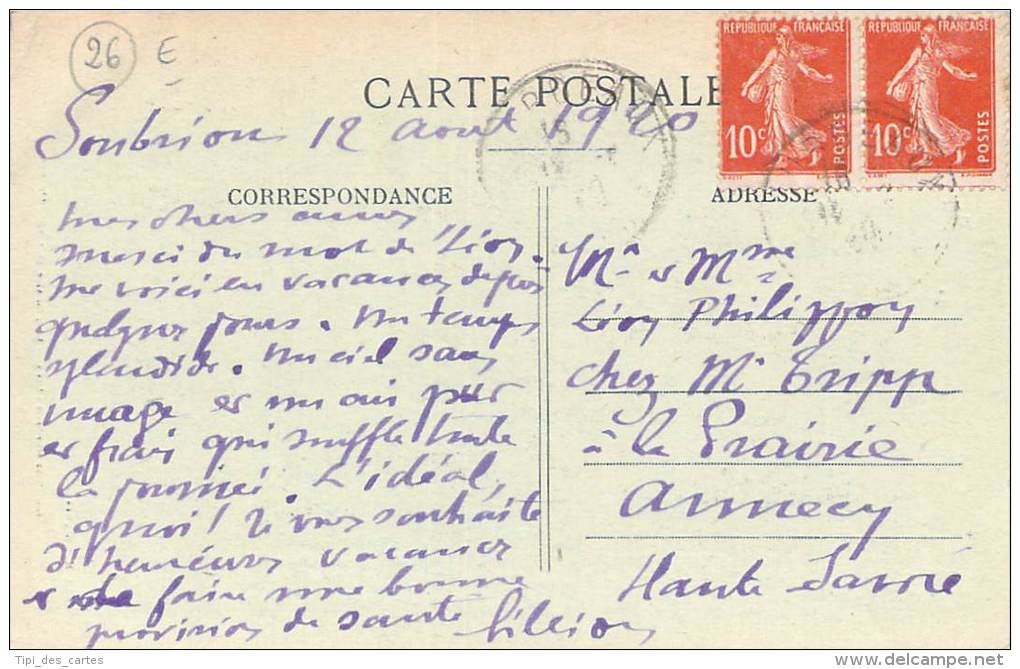 26 E
CARTE POSTALE
REPUBLIQUE FRANÇAISE
10c POSTES
REPUBLIQUE FRANÇAISE
10c POSTES
12 aout 1920
CORRESPONDANCE
mes chers amis
merci du mot de Léon.
Me voici en vacances depuis
quelques jours. Un temps
splendide. Un ciel sans
nuage et un air pur
et frais qui souffle toute
la journée. L'idéal,
quoi! Je vous souhaite
d'heureuses vacances
et de faire une bonne
provision de santé
ADRESSE
Mr et Mme
Léon Philippon
chez Mr Tripp
à la Prairie
Annecy
Haute Savoie
Tipi_des_cartes
delcampe.net